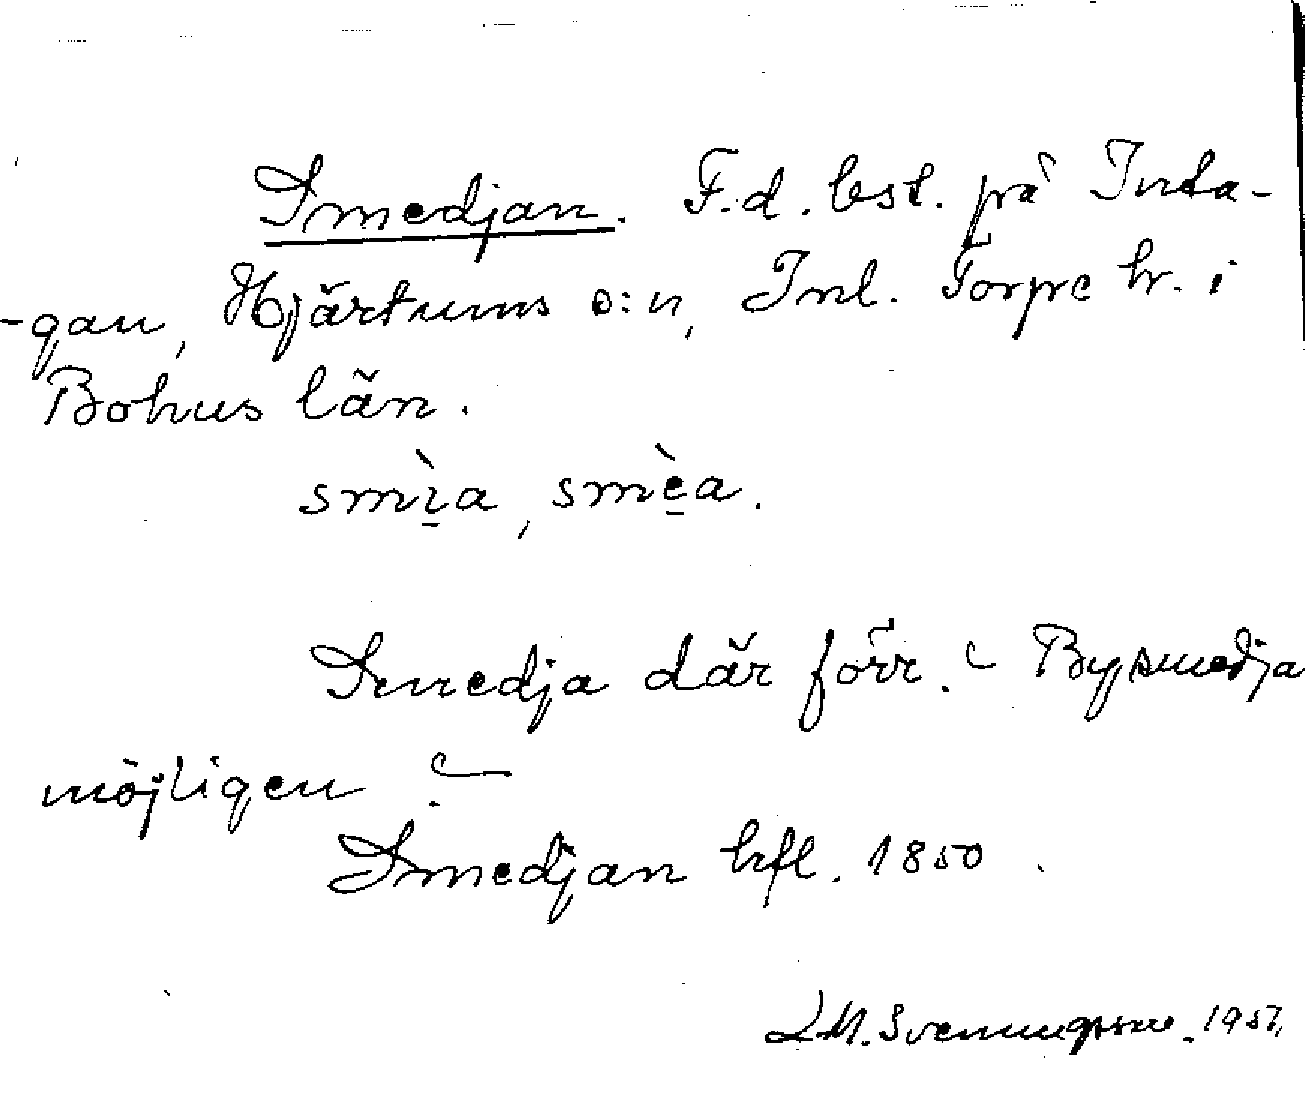 Smedjan. F.d. bst. på Inta-
-gan, Hjärtums s:n, Inl. Torpe hr. i
Bohus län.
smi̠̇̀a, smè̠a.
Smedja där förr. - Bysmedja
möjligen?
Smedjan hfl. 1850.
LM. Svenungsson. 1957.